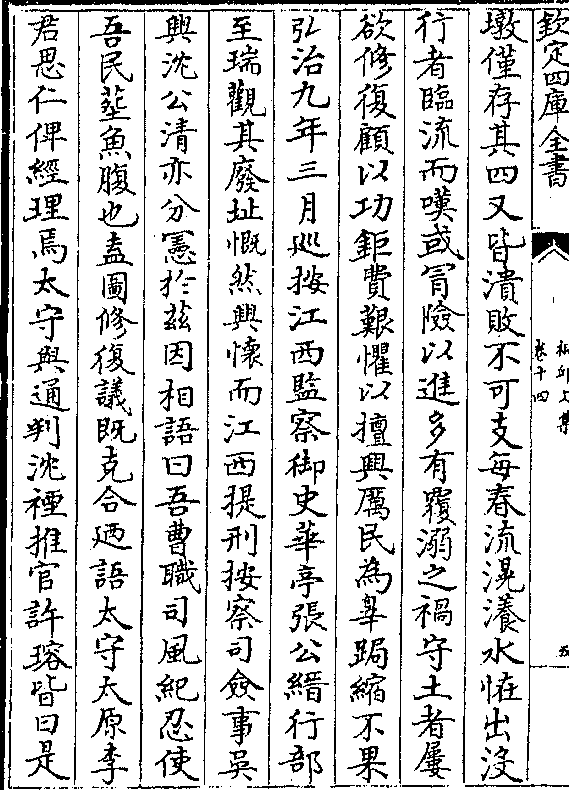 欽定四庫全書
卷十四
五
墩僅存其四又皆潰敗不可支每春流滉瀁水恠出沒
行者臨流而嘆或冐險以進多有覆溺之禍守土者屢
欲修復顧以功鉅費艱懼以擅興厲民為辠跼縮不果
弘治九年三月廵按江西監察御史華亭張公縉行部
至瑞觀其廢址慨然興懷而江西提刑按察司僉事吳
興沈公清亦分憲於兹因相語曰吾曹職司風紀忍使
吾民葬魚腹也盍圖修復議既克合廼語太守太原李
君思仁俾經理焉太守與通判沈禋推官許瑢皆曰是